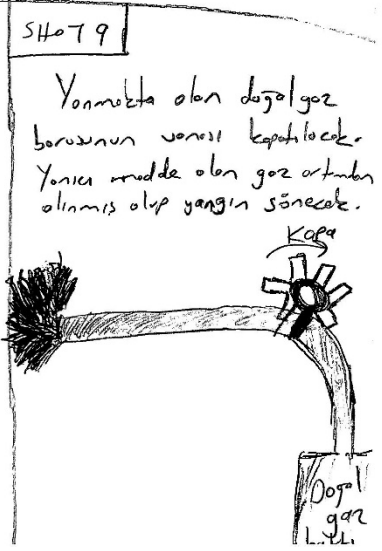 SHOT 9
Yanmakta olan doğal gaz
borusunun vanası kapatılacak.
Yanıcı madde olan gaz ortamdan
alınmış olup yangın sönecek.
Kapa
Doğal
gaz